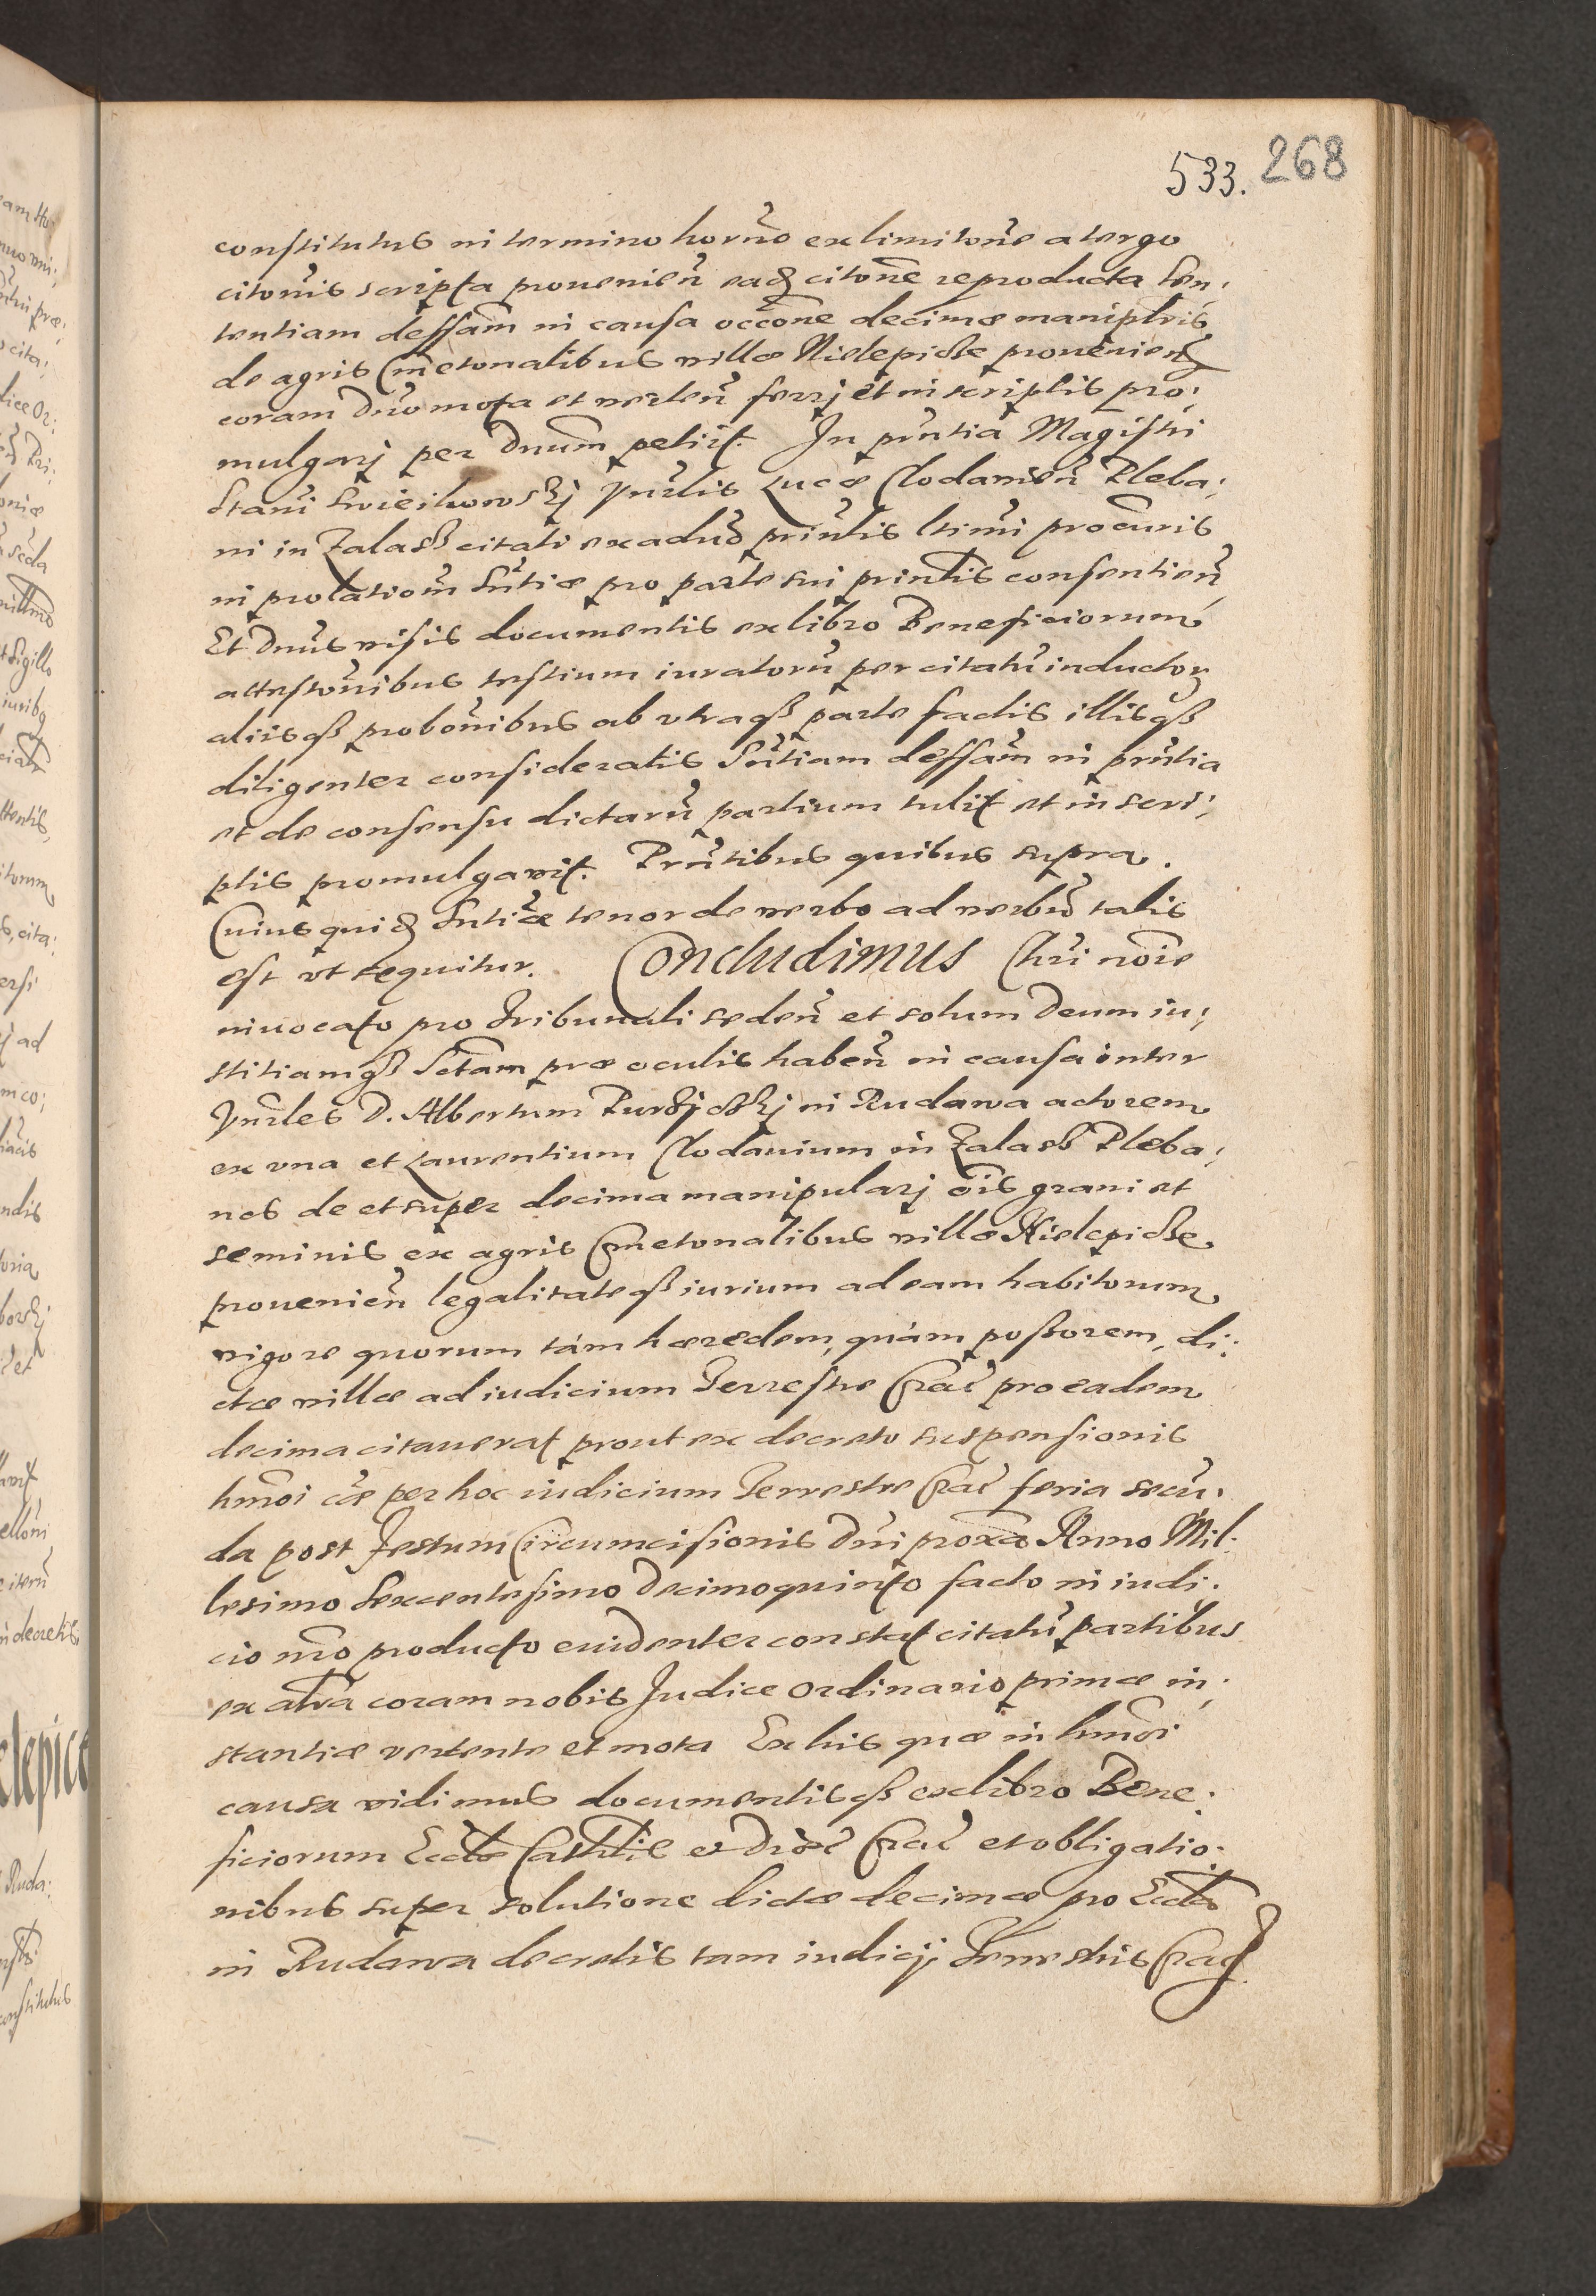 533. 268
constitutus in termino horũo ex limitoñe a tergo
citoñis scripta prouenieñ eadẽ citoñe reproducta sen:
tentiam deffam̃ in causa occoñe decimæ maniplris
de agris Cmetonalibus villæ Nielepicze prouenieñ
coram Dño mota et verteñ ferrj et in scriptis pro:
mulgarj per Dnum̃ petijt. In pñtia Magistri
Stañi Vñrlis Lucæ Clodawieñ Pleba:
ni in Zalass citati ex aduo prinlis ltimi procuris
in prolatioem̃ Sñtiæ pro parte sui prinlis consentieñ
Et Dnũs visis documentis ex libro Beneficiorum
attestoñibus testium iuratorũ per citatũ inductorz
aliisqz proboñibus ab vtraqz parte factis illisqz
diligenter consideratis Sñtiam deffam̃ in pñtia
et de consensu dictarũ partium tulit et in scri:
ptis promulgauit. Prñtibus quibus supra.
Cuius quidẽ Sntiæ tenor de verbo ad verbũ talis
est vt sequitur. Concludimus Chri noĩe
inuocato pro Tribunali sedeñ et solum Deum iu:
stitiamqz Sctam præ oculis habeñ in causa inter
Vñrles D. Albertum in Rudawa actorem
ex vna et Laurentium Clodauium in Zalass Pleba:
nos de et super decima manipularj oĩs grani et
seminis ex agris Cmetonalibus villæ Nielepicze
prouenieñ legalitateqz iurium ad eam habitorum
vigore quorum tàm hæredem, quàm possorem, di:
ctæ villæ ad iudicium Terrestre Crac̃ pro eadem
decima citauerat prout ex decreto suspensionis
hmõi cãe per hoc iudicium Terrestre Crac̃ feria secũ:
da post Festum Circumcisionis Dni proxa Anno Mil:
lesimo Sexcentesimo Decimoquinto facto in iudi:
cio nrõ producto euidenter constat citatũ partibus
ex altra coram nobis Judice Ordinario primæ in:
stantiæ vertente et mota Ex his quæ in hmõi
causa vidimus documentisqz ex libro Bene:
ficiorum Ecclæ Cathlis et Diœc̃ Crac̃ et obligatio:
nibus super solutione dictæ decimæ pro Eccla
in Rudawa decretis tam iudicij Terrestris Crac̃